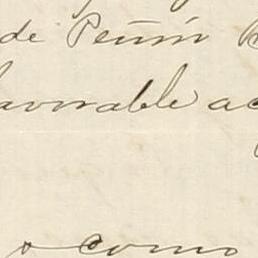 de Peñon
favorable ac
o como